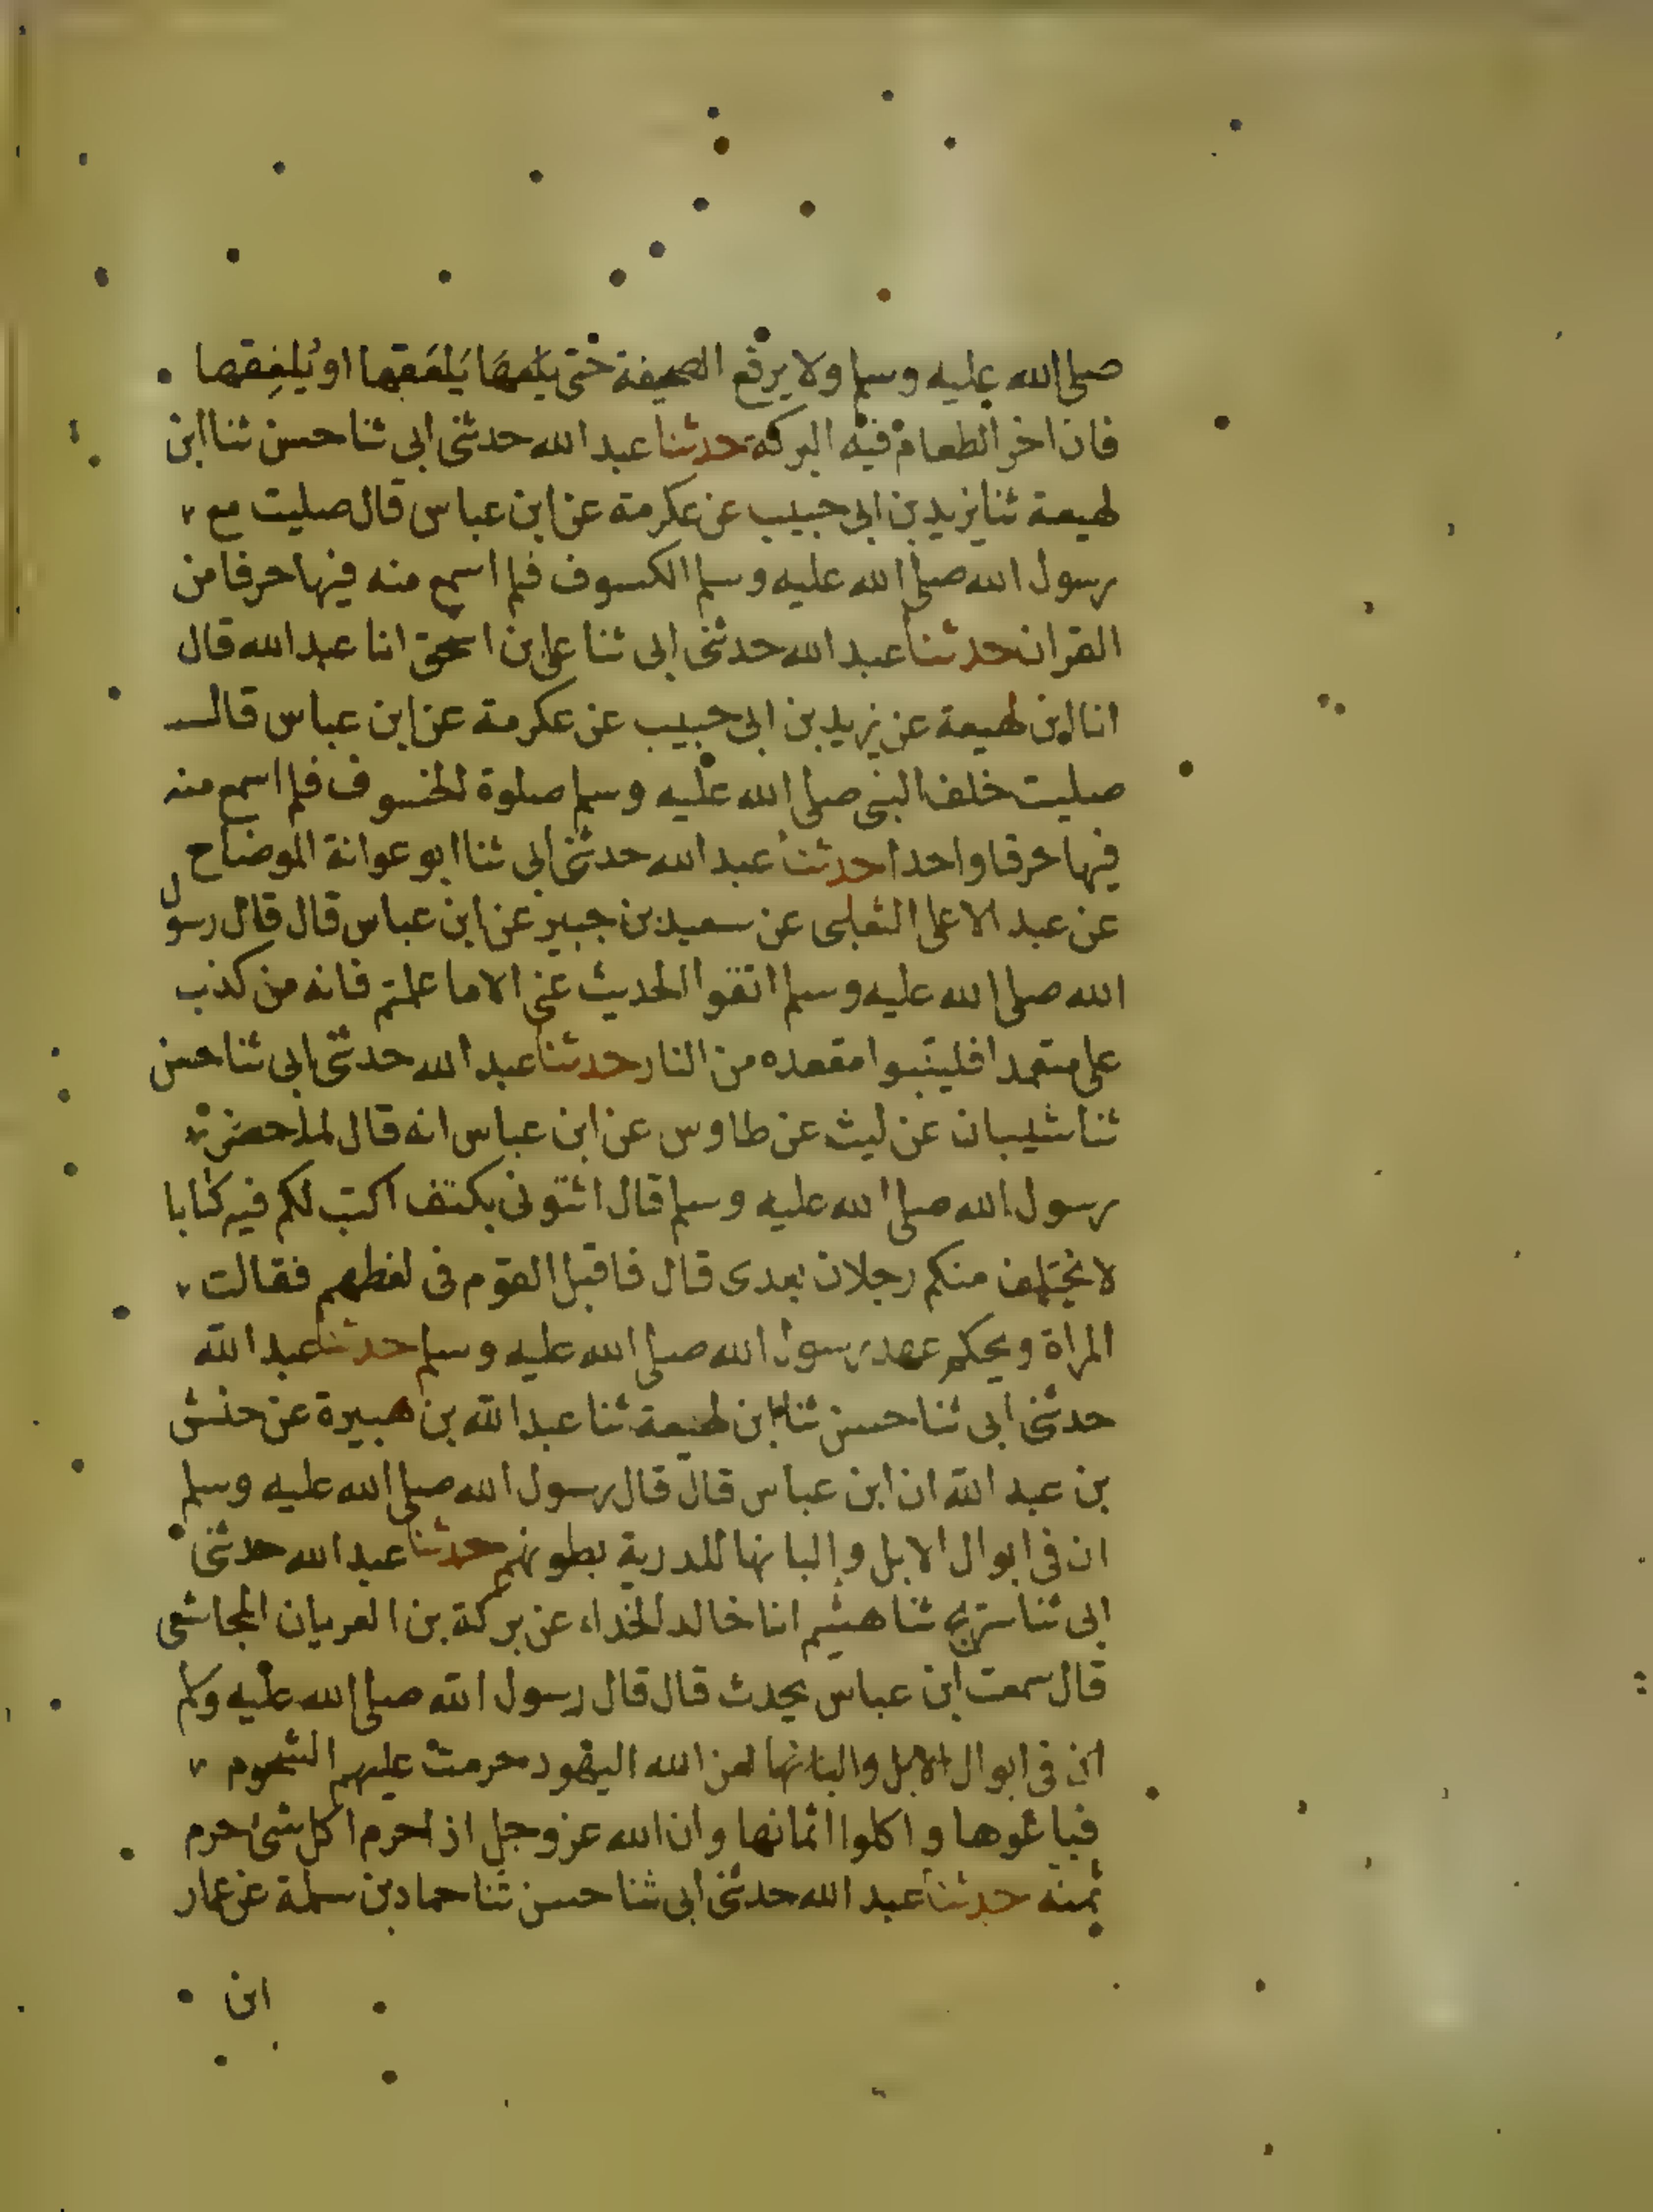 صلى الله عليه وسلم ولا يرفع الصحيفة حتى يلعقها يَلعَقها او يُلعِقها
فان اخر الطعام فيه البركة حدثنا عبد الله حدثنى ابى ثنا حسن ثنا ابن
لهيعة ثنا يزيد بن ابى حبيب عن عكرمة عن ابن عباس قال صليت مع
رسول الله صلى الله عليه وسلم الكسوف فلم اسمع منه فيها حرفا من
القران حدثنا عبد الله حدثنى ابى ثنا على بن اسحق انا عبد الله قال
انا ابن لهيعة عن يزيد بن ابى حبيب عن عكرمة عن ابن عباس قال
صليت خلف النبى صلى الله عليه وسلم صلوة الخسوف فلم اسمع منه
فيها حرفا واحدا حدثنا عبد الله حدثنى ابى ثنا ابو عوانة الوضاح
عن عبد الاعلى الثعلبى عن سعيد بن جبير عن ابن عباس قال قال رسول
الله صلى الله عليه وسلم اتقوا الحديث عنى الا ما علمتم فانه من كذب
على متعمدا فليتبوا مقعده من النار حدثنا عبد الله حدثنى ابى ثنا حسن
ثنا شيبان عن ليث عن طاوس عن ابن عباس انه قال لما حضر
رسول الله صلى الله عليه وسلم قال ائتونى بكتف اكتب لكم فيه كتابا
لا يختلف منكم رجلان بعدى قال فاقبل القوم فى لغطهم فقالت
المراة ويحكم عهد رسول الله صلى الله عليه وسلم حدثنا عبد الله
حدثنى ابى ثنا حسن ثنا ابن لهيعة ثنا عبد الله بن هبيرة عن حنش
بن عبد الله ان ابن عباس قال قال رسول الله صلى الله عليه وسلم
ان فى ابوال الابل والبانها للدربة بطونهم حدثنا عبد الله حدثنى
ابى ثنا سريج ثنا هشيم انا خالد الحذاء عن بركة بن العريان المجاشعى
قال سمعت ابن عباس يحدث قال قال رسول الله صلى الله عليه وسلم
ان فى ابوال الابل والبانها لعن الله اليهود حرمت عليهم الشحوم
فباعوها واكلوا اثمانها وان الله عز وجل اذا حرم اكل شئ حرم
ثمنه حدثنا عبد الله حدثنى ابى ثنا حسن ثنا حماد بن سلمة عن عمار
ابن